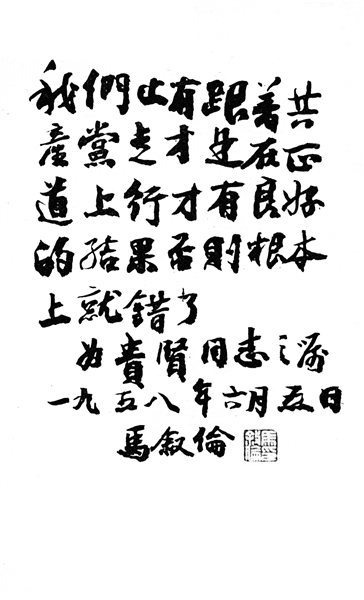 我們止有跟着共
產黨走才是在正
道上行才有良好
的結果否則根本
上就錯了
為貴賢同志之屬
一九五八年六月五日
馬叙倫